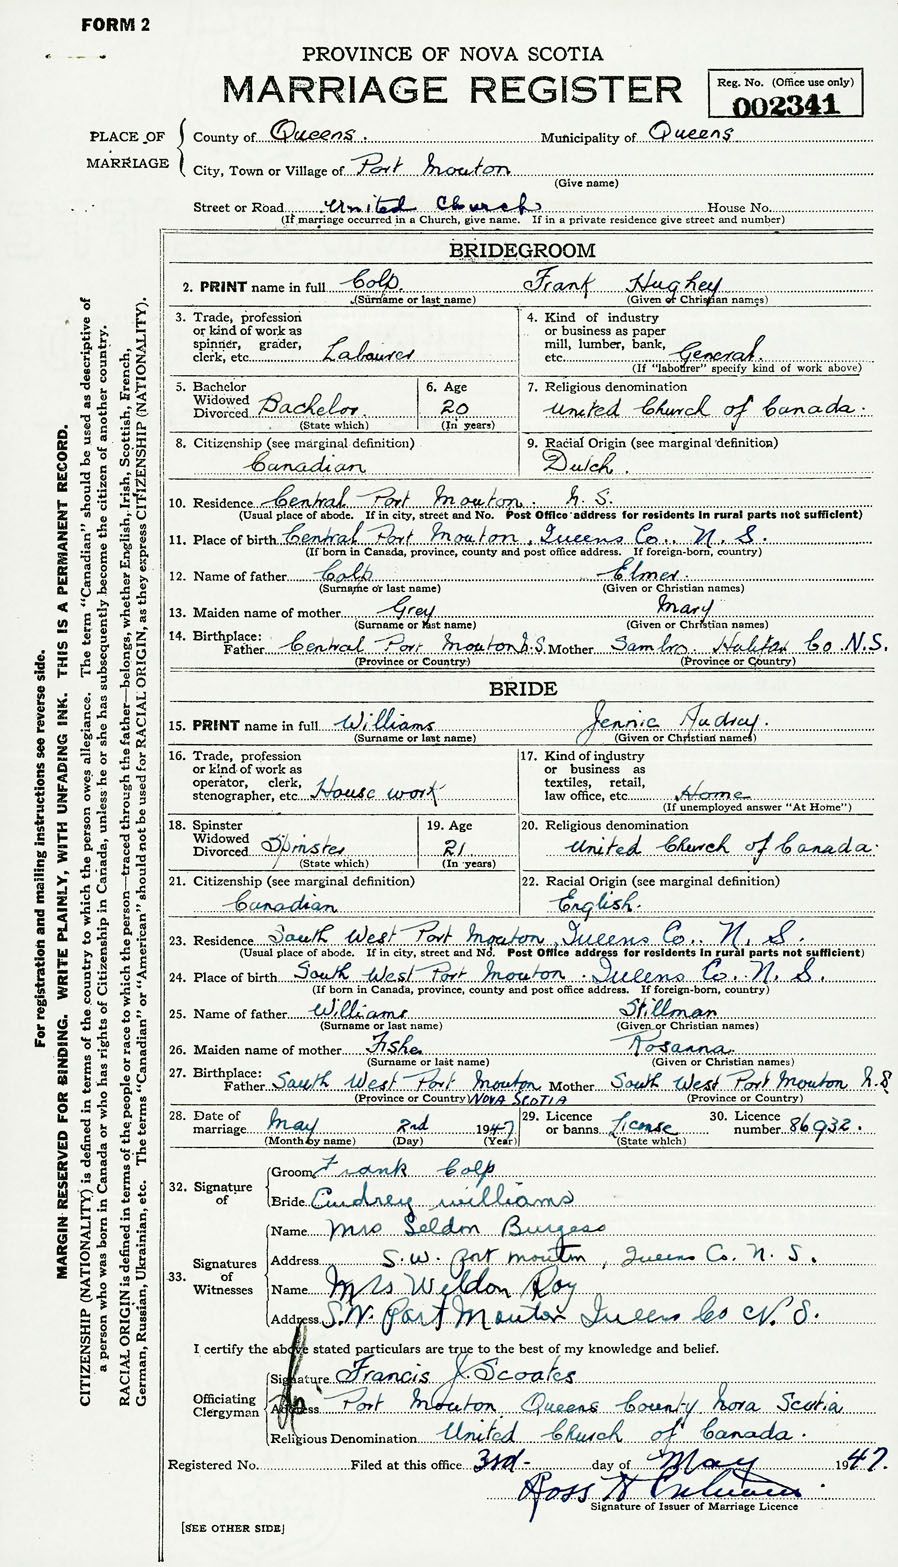 FORM 2
PROVINCE OF NOVA SCOTIA
MARRIAGE REGISTER
Reg. No. (Office use only)
002341
PLACE OF MARRIAGE
County of Queens. Municipality of Queens
City, Town or Village of Port Mouton
(Give name)
Street or Road United Church House No.
(If marriage occurred in a Church, give name. If in a private residence give street and number)
BRIDEGROOM
2. PRINT name in full Colp. Frank Hughey
(Surname or last name) (Given or Christian names)
3. Trade, profession or kind of work as spinner, grader, clerk, etc. Labourer
4. Kind of industry or business as paper mill, lumber, bank, etc. General.
(If "labourer" specify kind of work above)
5. Bachelor Widowed Divorced Bachelor.
(State which)
6. Age 20
(In years)
7. Religious denomination
United Church of Canada.
8. Citizenship (see marginal definition)
Canadian
9. Racial Origin (see marginal definition)
Dutch.
10. Residence Central Port Mouton. N.S.
(Usual place of abode. If in city, street and No. Post Office address for residents in rural parts not sufficient)
11. Place of birth Central Port Mouton, Queens Co., N.S.
(If born in Canada, province, county and post office address. If foreign-born, country)
12. Name of father Colp Elmer.
(Surname or last name) (Given or Christian names)
13. Maiden name of mother Grey Mary
(Surname or last name) (Given or Christian names)
14. Birthplace:
Father Central Port Mouton N.S. Mother Sambro Halifax Co N.S.
(Province or Country) (Province or Country)
BRIDE
15. PRINT name in full Williams Jennie Audrey.
(Surname or last name) (Given or Christian names)
16. Trade, profession or kind of work as operator, clerk, stenographer, etc. House work
17. Kind of industry or business as textiles, retail, law office, etc. Home
(If unemployed answer "At Home")
18. Spinster Widowed Divorced Spinster
(State which)
19. Age 21
(In years)
20. Religious denomination
United Church of Canada.
21. Citizenship (see marginal definition)
Canadian
22. Racial Origin (see marginal definition)
English.
23. Residence South West Port Mouton, Queens Co., N.S.
(Usual place of abode. If in city, street and No. Post Office address for residents in rural parts not sufficient)
24. Place of birth South West Port Mouton. Queens Co. N.S.
(If born in Canada, province, county and post office address. If foreign-born, country)
25. Name of father Williams Stillman
(Surname or last name) (Given or Christian names)
26. Maiden name of mother Fishe Rosanna
(Surname or last name) (Given or Christian names)
27. Birthplace:
Father South West Port Mouton Mother South West Port Mouton N.S
(Province or Country) NOVA SCOTIA (Province or Country)
28. Date of marriage May 2nd 1947
(Month by name) (Day) (Year)
29. Licence or banns License
(State which)
30. Licence number 86932.
32. Signature of
Groom Frank Colp
Bride Audrey Williams
33. Signatures of Witnesses
Name Mrs Seldon Burgess
Address S.W. Port Mouton, Queens Co. N.S.
Name Mrs Weldon Roy
Address S.W. Port Mouton Queens Co N.S.
I certify the above stated particulars are true to the best of my knowledge and belief.
Officiating Clergyman
Signature Francis J. Scoates
Address Port Mouton Queens County Nova Scotia
Religious Denomination United Church of Canada.
Registered No. Filed at this office 3rd- day of May 1947.
Ross H
Signature of Issuer of Marriage Licence
[SEE OTHER SIDE]
For registration and mailing instructions see reverse side.
MARGIN RESERVED FOR BINDING. WRITE PLAINLY, WITH UNFADING INK. THIS IS A PERMANENT RECORD.
CITIZENSHIP (NATIONALITY) is defined in terms of the country to which the person owes allegiance. The term "Canadian" should be used as descriptive of
a person who was born in Canada or who has rights of Citizenship in Canada, unless he or she has subsequently become the citizen of another country.
RACIAL ORIGIN is defined in terms of the people or race to which the person—traced through the father—belongs, whether English, Irish, Scottish, French,
German, Russian, Ukrainian, etc. The terms "Canadian" or "American" should not be used for RACIAL ORIGIN, as they express CITIZENSHIP (NATIONALITY).